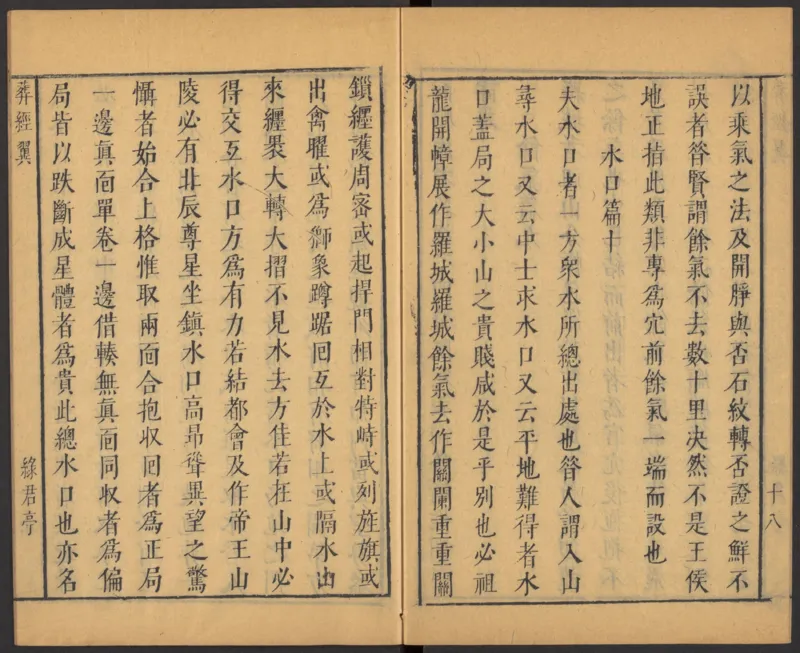 以乘氣之法及開睜與否石紋轉否證之鮮不
誤者昝賢謂餘氣不去數十里决然不是王侯
地正指此類非專爲宂前餘氣一端而設也
水口篇十
夫水口者一方衆水所總出處也昝人謂入山
尋水口又云中士求水口又云平地難得者水
口蓋局之大小山之貴賤咸於是乎別也必祖
龍開幛展作羅城羅城餘氣去作關闌重重關
十八
鎖纒護周密或起捍門相對特峙或列旌旗或
出禽曜或爲獅象蹲踞囘互於水上或隔水山
來纒褁大轉大摺不見水去方佳若在山中必
得交互水口方爲有力若結都會及作帝王山
陵必有北辰尊星坐鎮水口高昻聳異望之驚
懾者始合上格惟取兩靣合抱収囘者爲正局
一邊眞靣單卷一邊借輳無眞靣同収者爲偏
局皆以跌斷成星體者爲貴此總水口也亦名
葬經翼
綠君亭